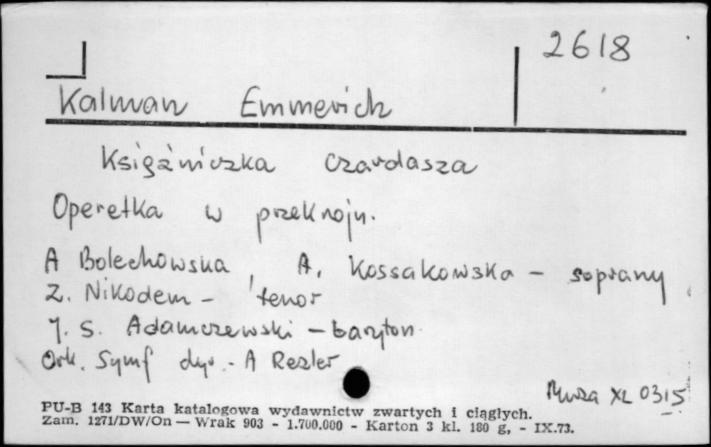 2618
Kalman Emmerich
Księżniczka Czardasza
Operetka w przekroju.
A Bolechowska, A. Kossakowska - soprany
Z. Nikodem - tenor
J. S. Adamczewski - baryton
Ork. Symf dyr. - A Rezler
Muza XL 0315
PU-B 143 Karta katalogowa wydawnictw zwartych i ciągłych.
Zam. 1271/DW/On — Wrak 903 - 1.700.000 - Karton 3 kl. 180 g, - IX.73.